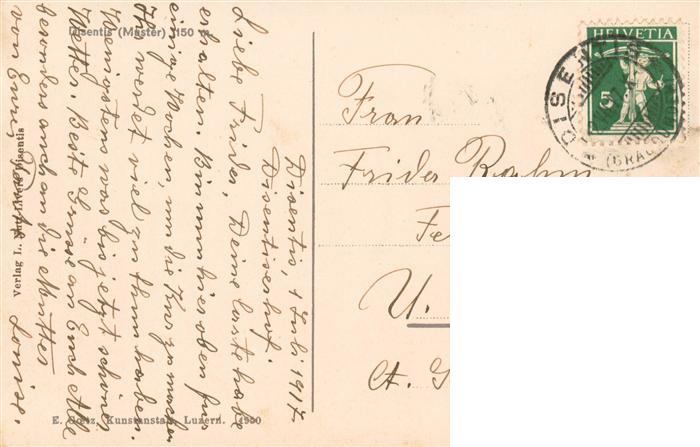 Disentis (Mustér) 1150 m
Disentis, 1 Juli 1917
Disentiserhof.
Liebe Frida, Deine Carte habe
erhalten. Bin nun hier oben für
einige Wochen, um die Kur zu machen
Ihr werdet viel zu thun haben.
Wenigstens was bis jetzt schönes
Wetter. Beste Grüsse an Euch Alle
besonders auch an die Mutter
von Eurer Louise.
Verlag L. Disentis
E. Goetz, Kunstanstalt, Luzern.
HELVETIA
5
DISENTIS
Frau
Frida Rahm
Fe
U.
Ct.